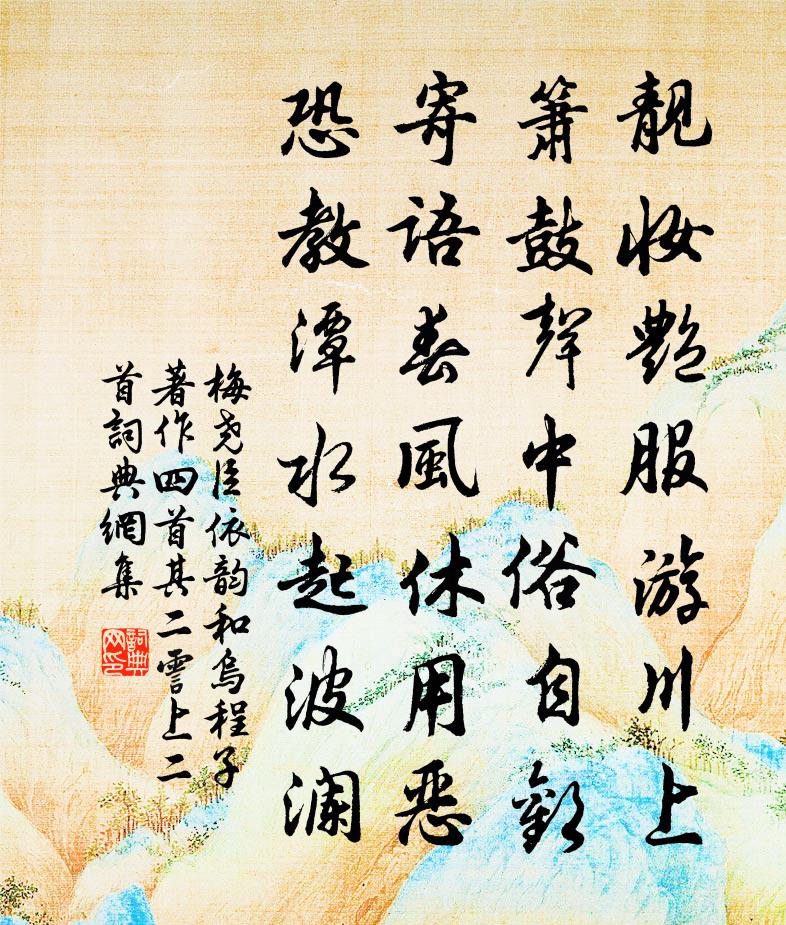 靚妝艷服游川上
簫鼓聲中俗自歡
寄語春風休用惡
恐教潭水起波瀾
梅堯臣依韵和烏程子
著作四首其二霅上二
首詞典網集
詞典网印